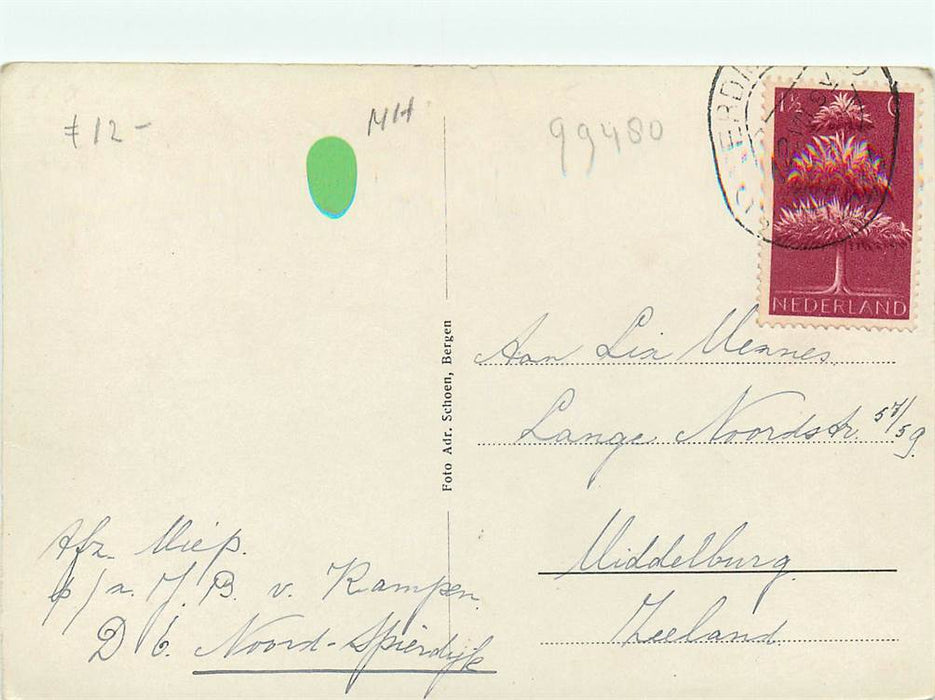 f 12 -
MH
99480
1½ C
NEDERLAND
Foto Adr. Schoen, Bergen
Aan Lia Mennes.
Lange Noordstr. 57/59.
Middelburg.
Zeeland.
Afz. Miep.
p/a. J. B. v. Kampen.
D 6. Noord-Spierdijk